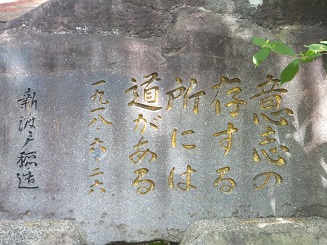 意志の
存する
所には
道がある
一九八六・六・二六
新波戸稲造